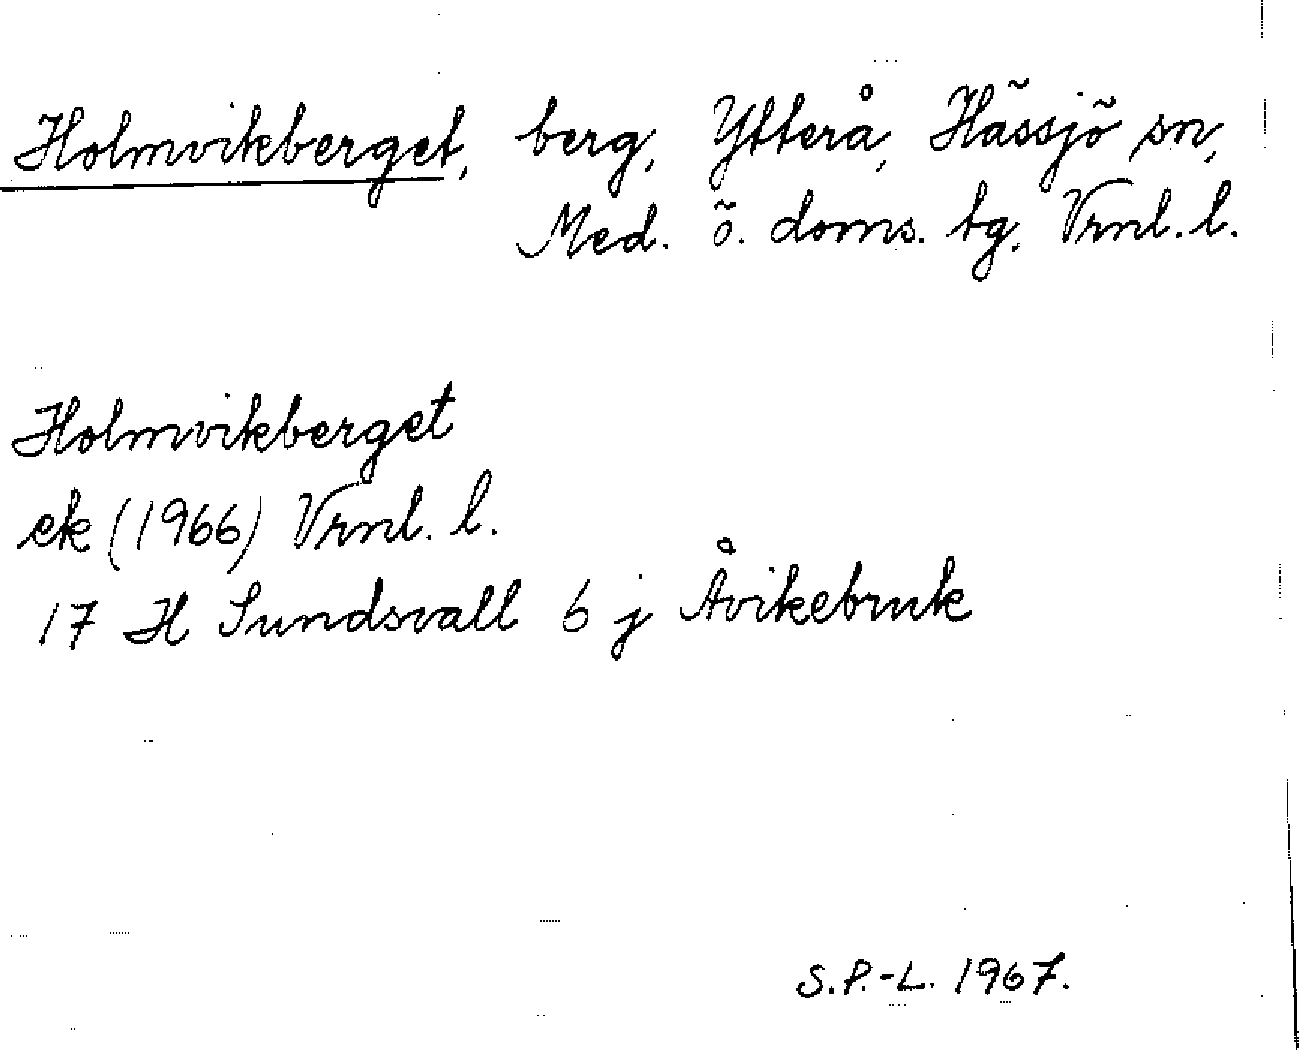 Holmvikberget, berg, Ytterå, Hässjö sn,
Med. ö. doms. tg, Vrnl. l.
Holmvikberget
ek (1966) Vrnl. l.
17 H Sundsvall 6 j Åvikebruk
S.P.-L. 1967.